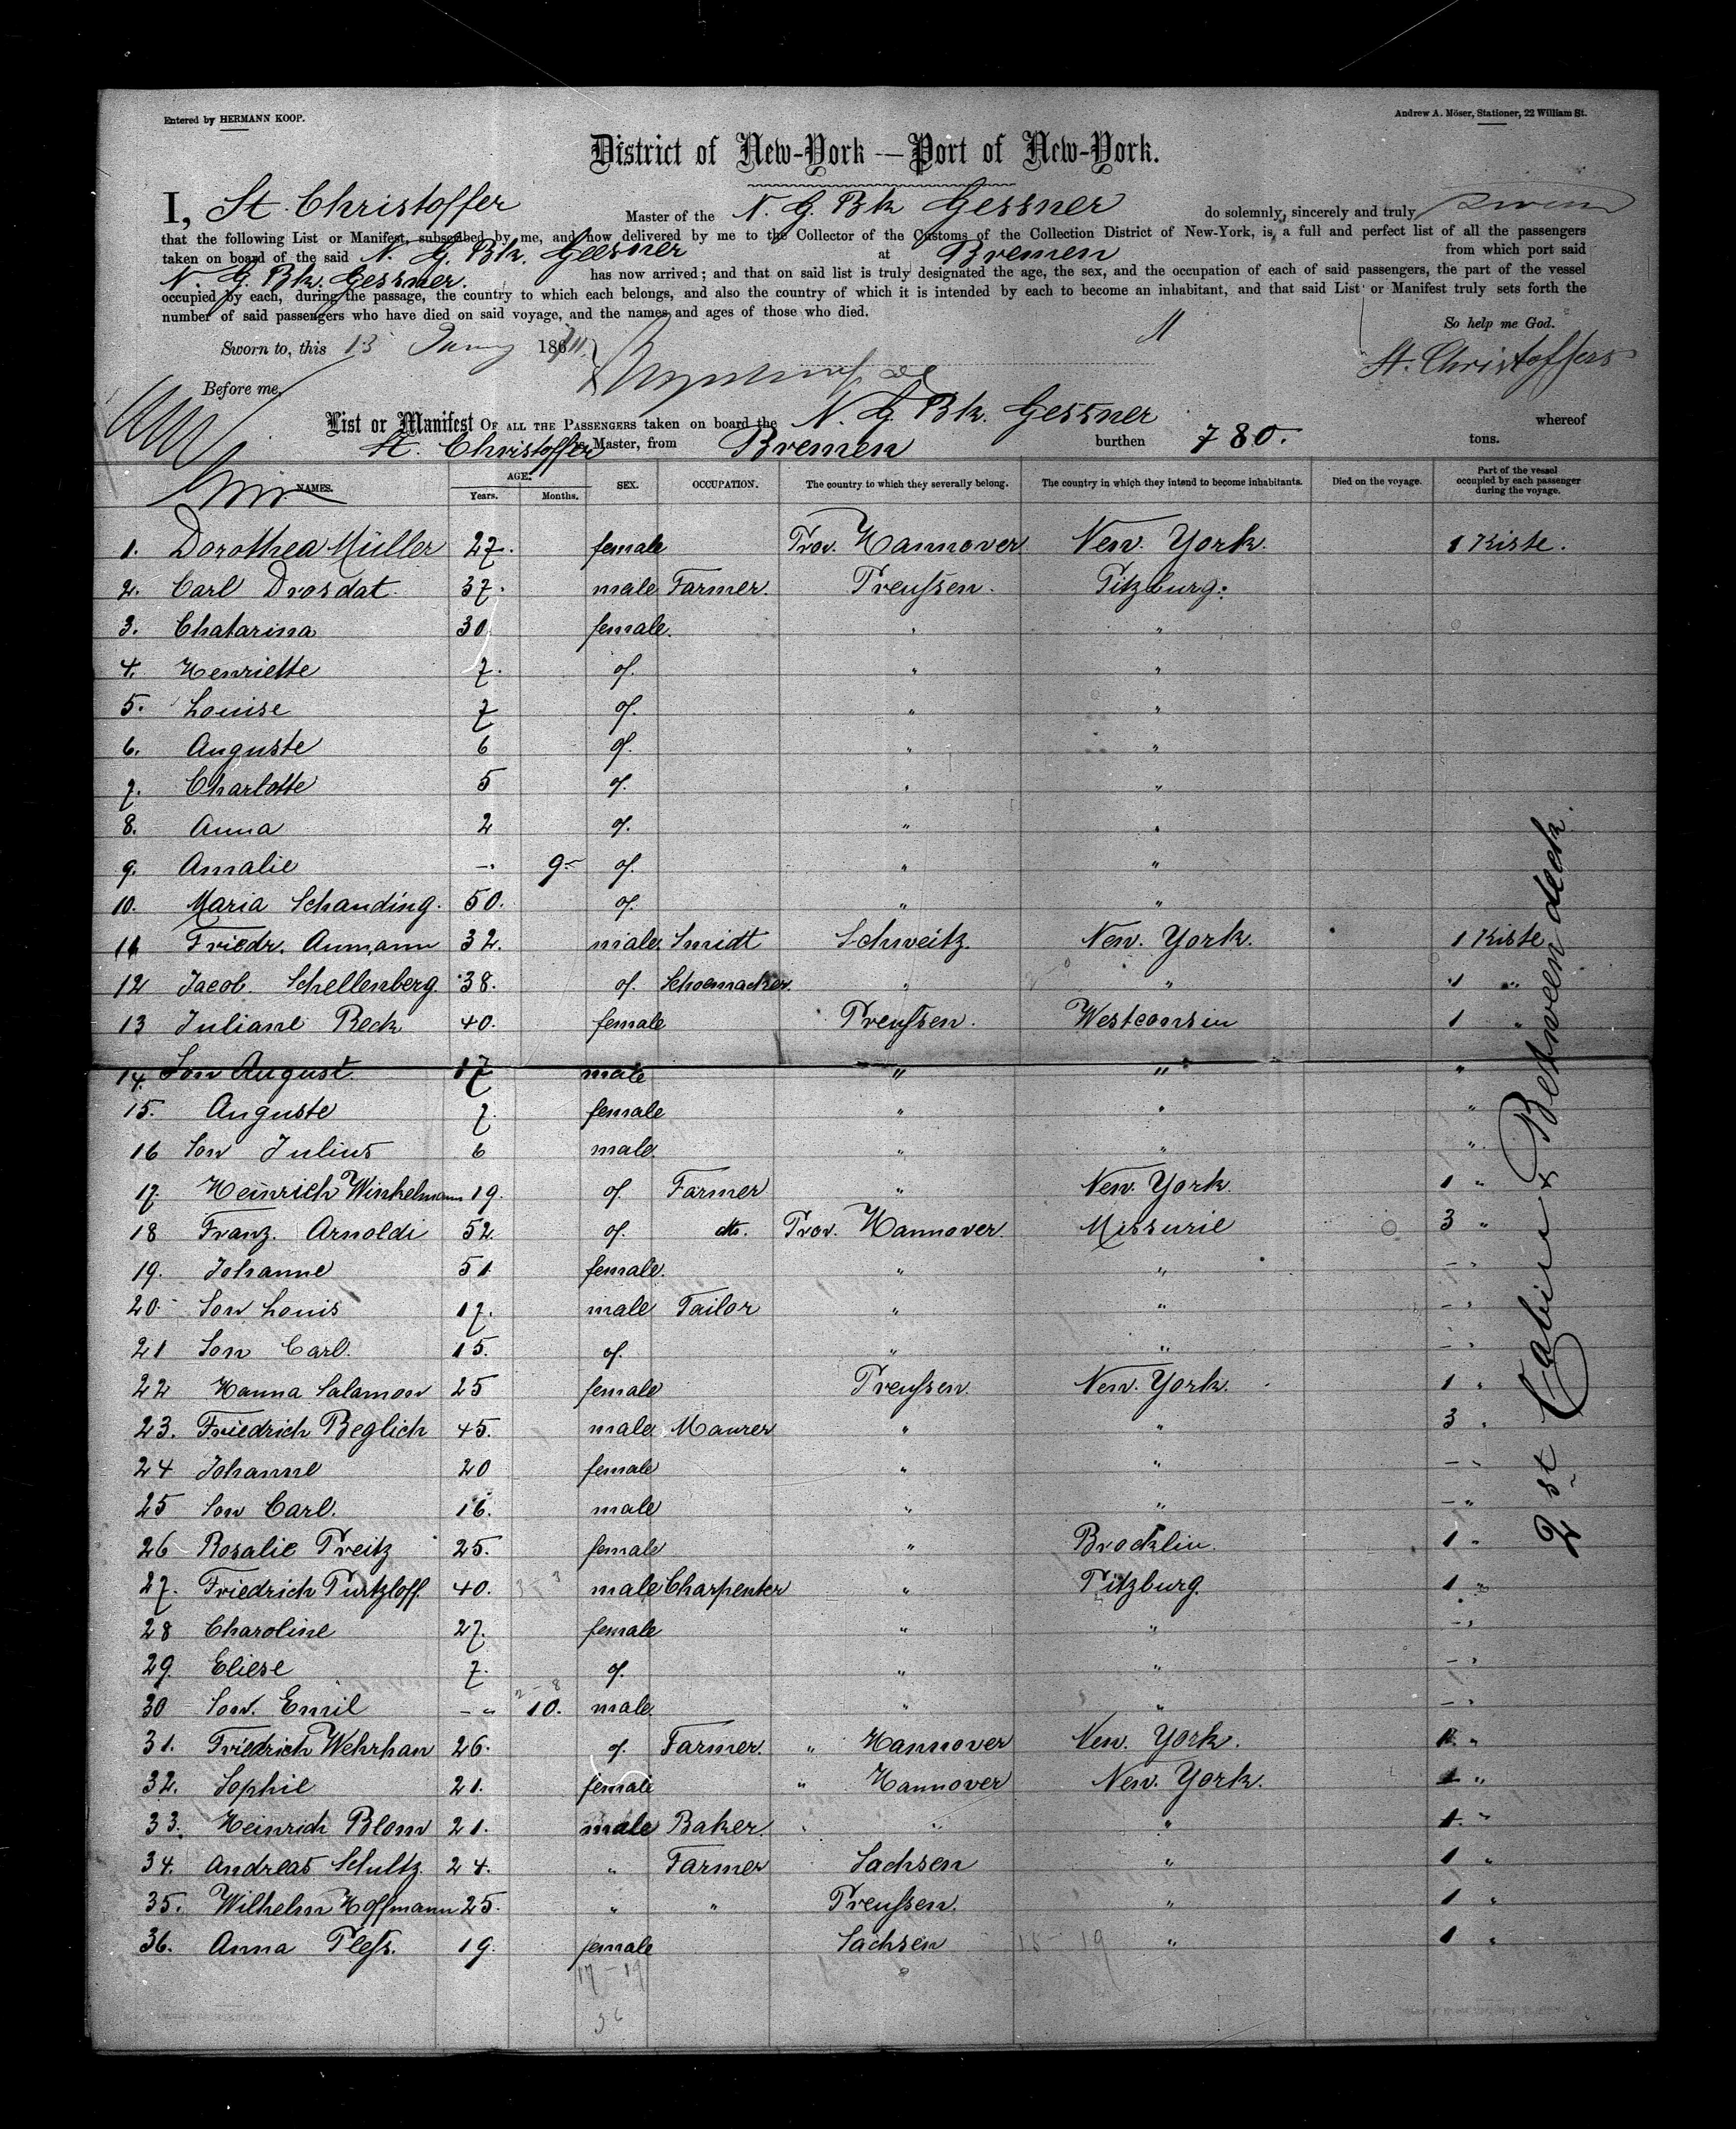 Entered by HERMANN KOOP.
Andrew A. Möser, Stationer, 22 William St.
District of New-York — Port of New-York.
I, St. Christoffer Master of the N. G. Bk Gessner do solemnly, sincerely and truly
that the following List or Manifest, subscribed by me, and now delivered by me to the Collector of the Customs of the Collection District of New-York, is, a full and perfect list of all the passengers
taken on board of the said N. G. Bk. Gessner at Bremen from which port said
N. G. Bk. Gessner. has now arrived; and that on said list is truly designated the age, the sex, and the occupation of each of said passengers, the part of the vessel
occupied by each, during the passage, the country to which each belongs, and also the country of which it is intended by each to become an inhabitant, and that said List or Manifest truly sets forth the
number of said passengers who have died on said voyage, and the names and ages of those who died.
So help me God.
Sworn to, this 13 186
St. Christoffers
Before me,
List or Manifest OF ALL THE PASSENGERS taken on board the N. G. Bk. Gessner whereof
St. Christoffers is Master, from Bremen burthen 780. tons.
NAMES. AGE. Years. Months. SEX. OCCUPATION. The country to which they severally belong. The country in which they intend to become inhabitants. Died on the voyage. Part of the vessel occupied by each passenger during the voyage.
1. Dorothea Müller 27. female Prov. Hannover New. York. 1 Kiste.
2. Carl Drosdat 37. male Farmer. Preußen. Pitzburg.
3. Chatarina 30 female. " "
4. Henriette 7. of. " "
5. Louise 7 of. " "
6. Auguste 6 of. " "
7. Charlotte 5 of. " "
8. Anna 2 of. " "
9. Amalie — 9 of. " "
10. Maria Schanding. 50. of. " "
11 Friedr. Aumann 32. male Smidt Schweitz. New. York. 1 Kiste
12 Jacob Schellenberg. 38. of. Schoemacker. " " 1 "
13 Juliane Reck 40. female Preußen. Westconsin 1 "
14. Son August 17 male " " "
15. Auguste 7. female " " "
16 Son Julius 6 male " " "
17. Heinrich Winkelmann 19. of. Farmer " New. York. 1 "
18 Franz. Arnoldi 52 of. dto. Prov. Hannover. Missurie 3 "
19. Johanne 51 female. " " — "
20. Son Louis 17. male Tailor " " — "
21 Son Carl. 15. of. " " — "
22 Hanna Salamon 25 female Preußen. New. York. 1 "
23. Friedrich Beglich 45. male Maurer " " 3 "
24 Johanne 20 female " " — "
25 Son Carl. 16. male " " — "
26 Rosalie Preitz 25. female " Brocklin. 1 "
27. Friedrich Purtzloff. 40. male Charpenter " Pitzburg. 1 "
28 Charoline 27. female " " — "
29. Eliese 7. of. " " — "
30 Son. Emil — " 10. male. " " — "
31. Friedrich Wehrhan 26. of. Farmer. " Hannover New. York. 1. "
32. Sophie 21. female " Hannover New. York. 1 "
33. Heinrich Blom 21. male Baker. " " " 1. "
34. Andreas Schultz 24. " Farmer Sachsen " 1 "
35. Wilhelm Hoffmann 25. " " Preußen. " 1 "
36. Anna Pleß. 19. female Sachsen " 1 "
2st Cabin & Betweendeck.
17 - 19
15 - 19
36